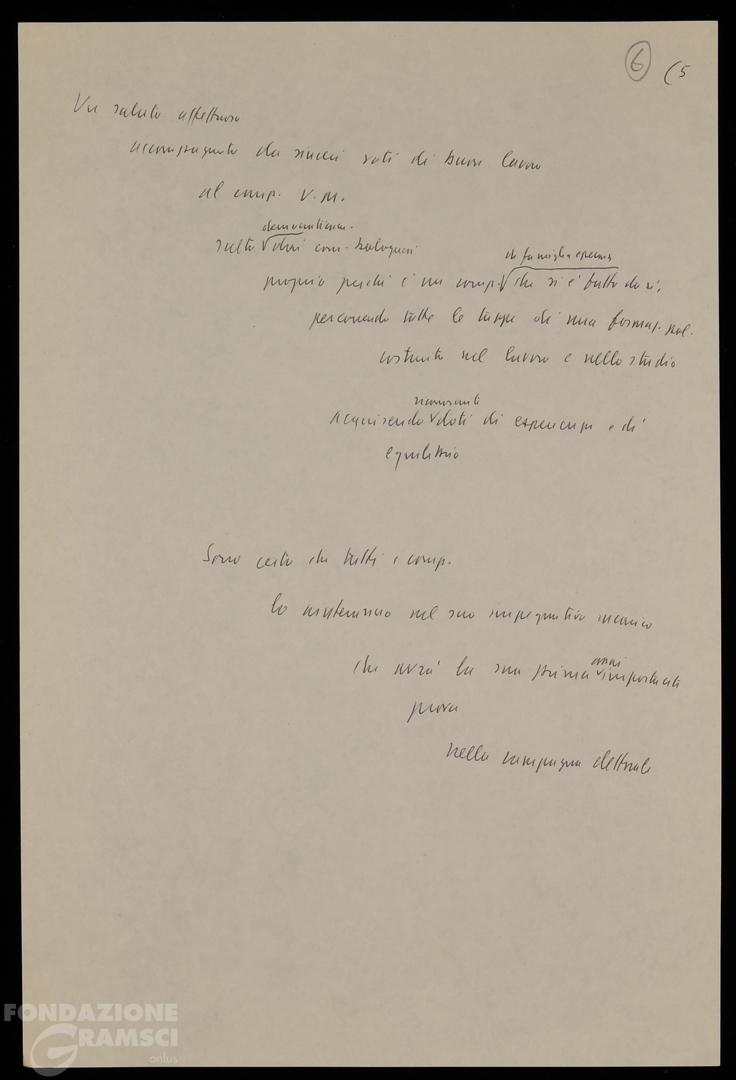 6 (5
Un saluto affettuoso
accompagnato da sinceri voti di buon lavoro
al comp. V.M.
democraticam.
scelto dai com. bolognesi
di famiglia operaia
proprio perché è un comp. che si è fatto da sé,
percorrendo tutte le tappe di una formaz. pol.
costruita nel lavoro e nello studio
acquisendo doti di esperienza e di
equilibrio
Sono certo che tutti i comp.
lo aiuteranno nel suo impegnativo incarico
che avrà la sua prima importante
assai
prova
nella campagna elettorale
FONDAZIONE
GRAMSCI
onlus